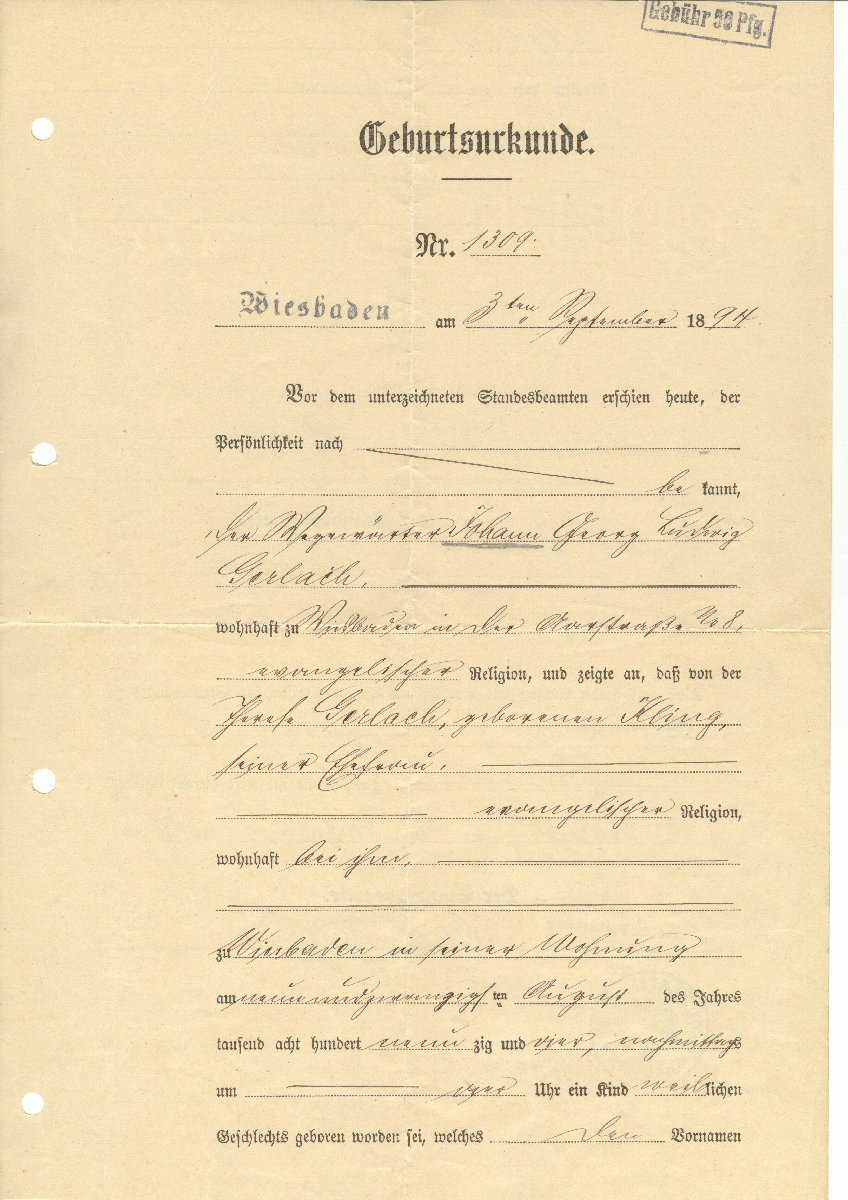 Gebühr 50 Pfg.
Geburtsurkunde.
Nr. 1309.
Wiesbaden am 3ten September 1894.
Vor dem unterzeichneten Standesbeamten erschien heute, der
Persönlichkeit nach
be kannt,
der Wegewärter Johann Georg Ludwig
Gerlach,
wohnhaft zu Wiesbaden in der Aarstraße No 8,
evangelischer Religion, und zeigte an, daß von der
Therese Gerlach, geborenen Kling,
seiner Ehefrau,
evangelischer Religion,
wohnhaft bei ihm,
zu Wiesbaden in seiner Wohnung
am neunundzwanzigsten August des Jahres
tausend acht hundert neun zig und vier, nachmittags
um vier Uhr ein Kind weiblichen
Geschlechts geboren worden sei, welches den Vornamen